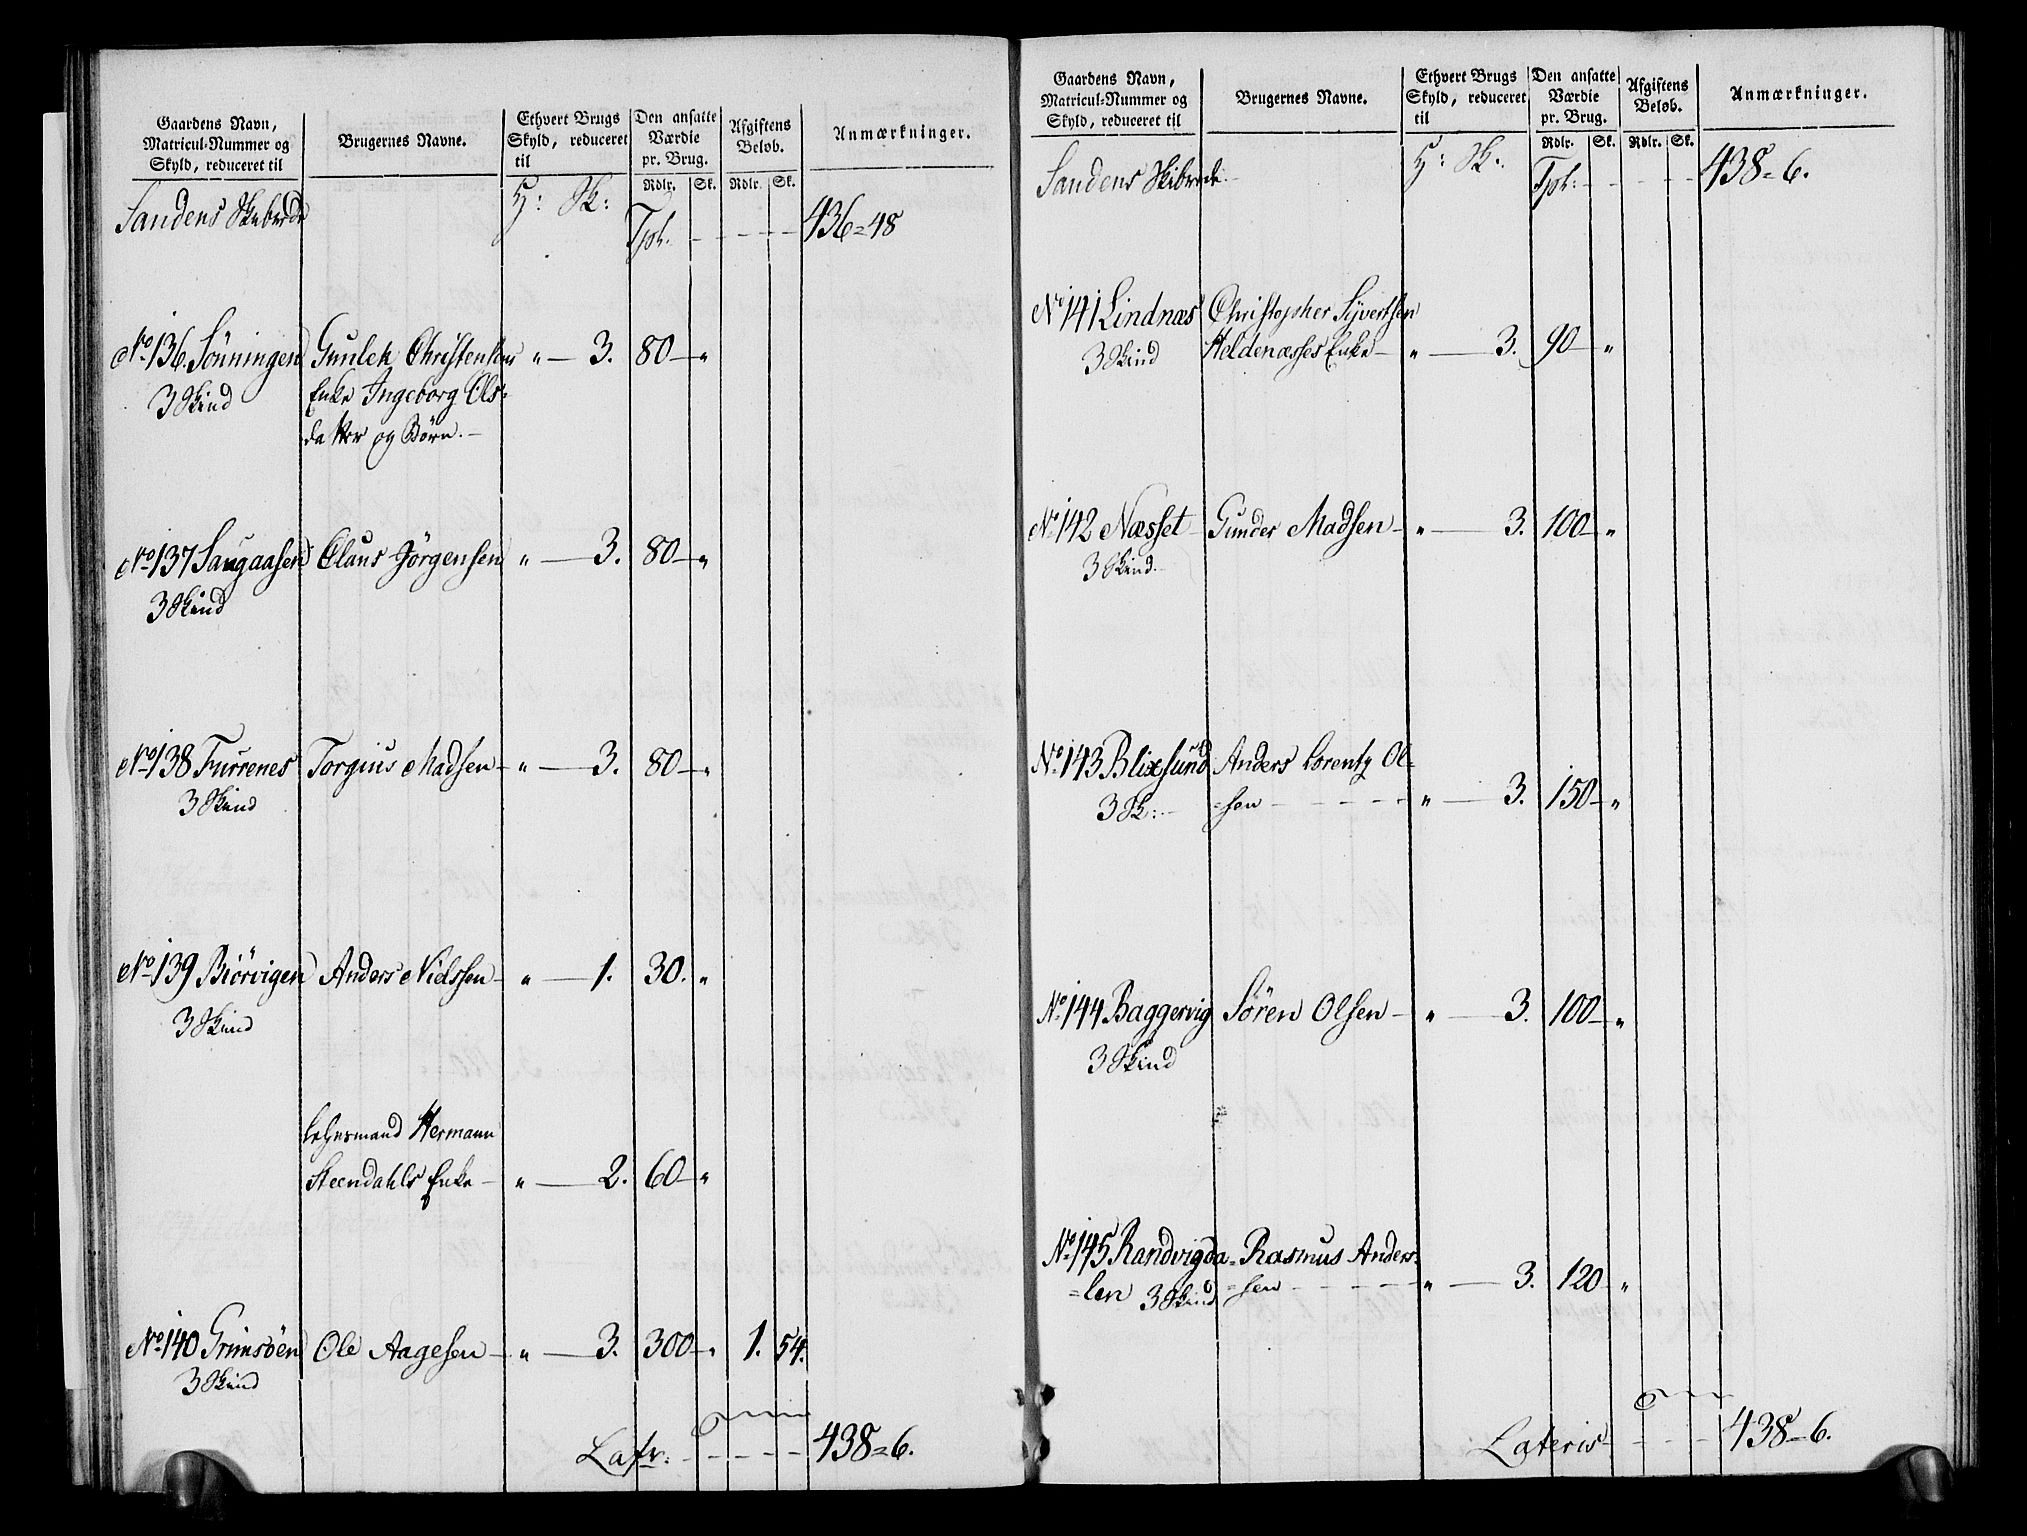 Gaardens Navn,
Matricul-Nummer og
Skyld, reduceret til
Brugernes Navne.
Ethvert Brugs
Skyld, reduceret
til
Den ansatte
Værdie
pr. Brug.
Rdlr. Sk.
Afgiftens
Beløb.
Rdlr. Sk.
Anmærkninger.
Sandens Skibrede H: Sk: Tpt. - - - - 436=48
No 136. Sönningen Gunlek Christensens " — 3. 80 — "
3 Skind Enke Ingeborg Ols-
datter og Börn. —
No 137 Saugaasen Claus Jörgensen " — 3. 80 — "
3 Skind
No 138 Furrenes Torgius Madsen — " — 3. 80 — "
3 Skind
No 139 Biörvigen Anders Nielssen — " — 1. 30. "
3 Skind
Lehnsmand Hermann
Steendahls Enke — " — 2. 60 — "
No 140 Grimsöen Ole Aagesen — " — 3. 300 — " 1. 54.
3 Skind
Latr: - - - - 438=6.
Gaardens Navn,
Matricul-Nummer og
Skyld, reduceret til
Brugernes Navne.
Ethvert Brugs
Skyld, reduceret
til
Den ansatte
Værdie
pr. Brug.
Rdlr. Sk.
Afgiftens
Beløb.
Rdlr. Sk.
Anmærkninger.
Sandens Skibrede H: Sk: Tpt: - - - - 438=6.
No 141 Lindnæs Christopher Syvertsen
3 Skind Heldenæsses Enke — " — 3. 90 — "
No 142 Næsset Gunder Madsen — " — 3. 100 — "
3 Skind.
No 143 Blixsund Anders Lorentz Ol-
3 Sk: =sen - - - - " — 3. 150 — "
No 144 Baggervig Sören Olsen — " — 3. 100 — "
3 Skind
No 145 Randvigda- Rasmus Anders-
=len 3 Skind =sen - - - - " — 3. 120 "
Lateris - - - - 438=6.